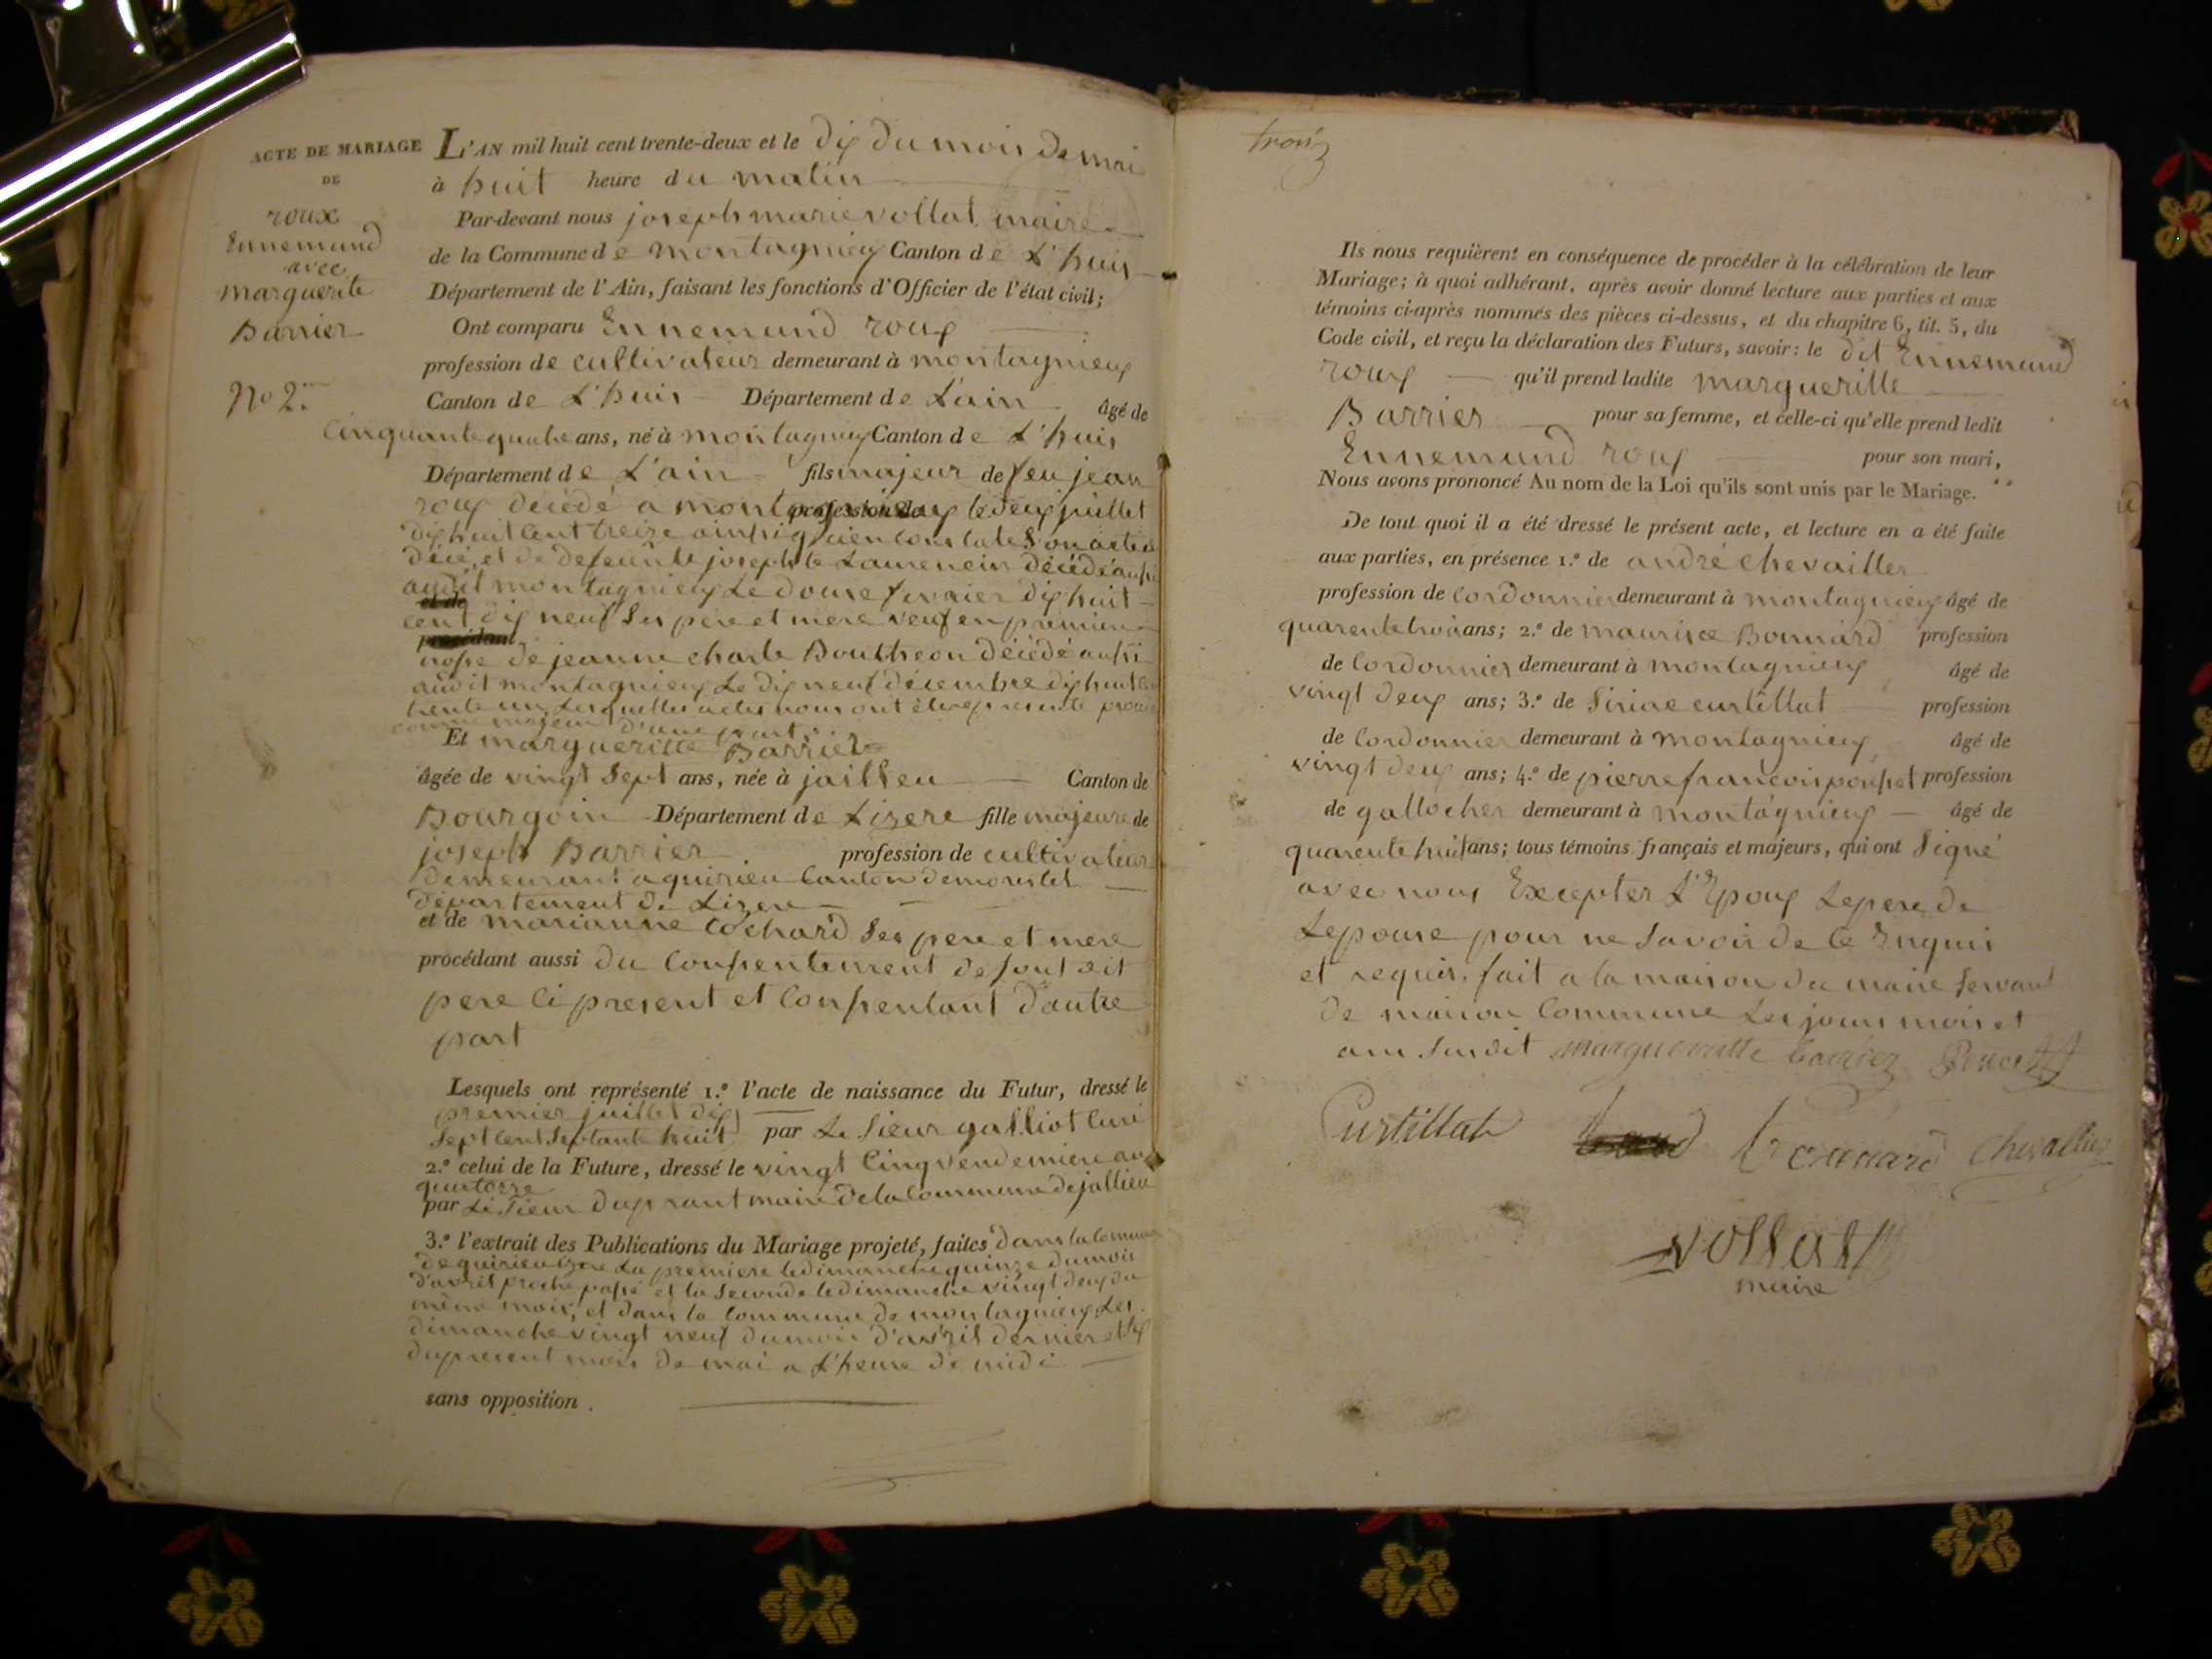 ACTE DE MARIAGE
DE
roux
Ennemund
avec
marguerite
Barrier
No 2.
L'AN mil huit cent trente-deux et le dix du mois de mai
à huit heure du matin
Par-devant nous joseph marie vollat maire
de la Commune de montagnieux Canton de L'huis
Département de l'Ain, faisant les fonctions d'Officier de l'état civil;
Ont comparu Ennemund roux
profession de cultivateur demeurant à montagnieux
Canton de L'huis Département de L'ain âgé de
Cinquante quatre ans, né à montagnieux Canton de L'huis
Département de L'ain fils majeur de feu jean
roux décédé a montagnieux le deux juillet
dix huit cent treize ainssi quien constate son acte de
décé, et de defeunte josephte Laurencin décédé aussi
audit montagnieux Le douse fevrier dix huit
cent dix neuf ses pere et mere veuf en premiere
nosse de jeanne charle Boutheon décédé aussi
audit montagnieux Le dix neuf décembre dix huit cent
trente un Lesquelles actes nous ont éte representé
comme majeur d'une part
Et margueritte Barrier
âgée de vingt sept ans, née à jaillieu Canton de
Bourgoin Département de Lizere fille majeure de
joseph Barrier profession de cultivateur
demeurant a quirieu Canton de morestel
département de Lizere
et de marianne Cochard ses pere et mere
procédant aussi du Conssentement de sout dit
pere Ci present et Conssentant d'autre
part
Lesquels ont représenté 1.º l'acte de naissance du Futur, dressé le
premier juillet dix
sept cent septante huit par Le sieur galliot Curé
2.º celui de la Future, dressé le vingt Cinq vendemiere an
quatorze
par Le sieur maire de la Commune de jallieu
3.º l'extrait des Publications du Mariage projeté, faites dans la Commune
de quirieu La premiere le dimanche quinze du mois
d'avril proche passé et la seconde le dimanche vingt deux du
même mois, et dans la Commune de montagnieux Les
dimanche vingt neuf du mois d'avril dernier et six
du present mois de mai a L'heure de midi
sans opposition.
Ils nous requièrent en conséquence de procéder à la célébration de leur
Mariage; à quoi adhérant, après avoir donné lecture aux parties et aux
témoins ci-après nommés des pièces ci-dessus, et du chapitre 6, tit. 5, du
Code civil, et reçu la déclaration des Futurs, savoir: le dit Ennemund
roux qu'il prend ladite marguerille
Barrier pour sa femme, et celle-ci qu'elle prend ledit
Ennemund roux pour son mari,
Nous avons prononcé Au nom de la Loi qu'ils sont unis par le Mariage.
De tout quoi il a été dressé le présent acte, et lecture en a été faite
aux parties, en présence 1.º de andré chevailler
profession de Cordonnier demeurant à montagnieux âgé de
quarente trois ans; 2.º de maurise Bonnard profession
de Cordonnier demeurant à montagnieux âgé de
vingt deux ans; 3.º de Siriae curtillat profession
de Cordonnier demeurant à montagnieux âgé de
vingt deux ans; 4.º de pierre francois pousset profession
de gallocher demeurant à montagnieux âgé de
quarente huit ans; tous témoins français et majeurs, qui ont Signé
avec nous Excepter L'Epoux Le pere de
Lepouse pour ne savoir de Ce Enquis
et requis. fait a la maison du maire servant
de maison Commune Les jours mois et
ans susdit margueritte barrier
Curtillat bonnard Chevallier
vollat
maire